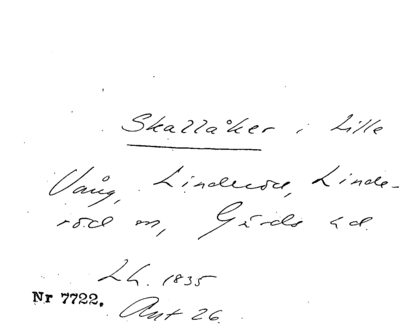 Skallåker i Lille
Vång, Linderöd, Linde-
röd sn, Gärds hd.
Lh. 1835
Nr 7722.
Ant 26.